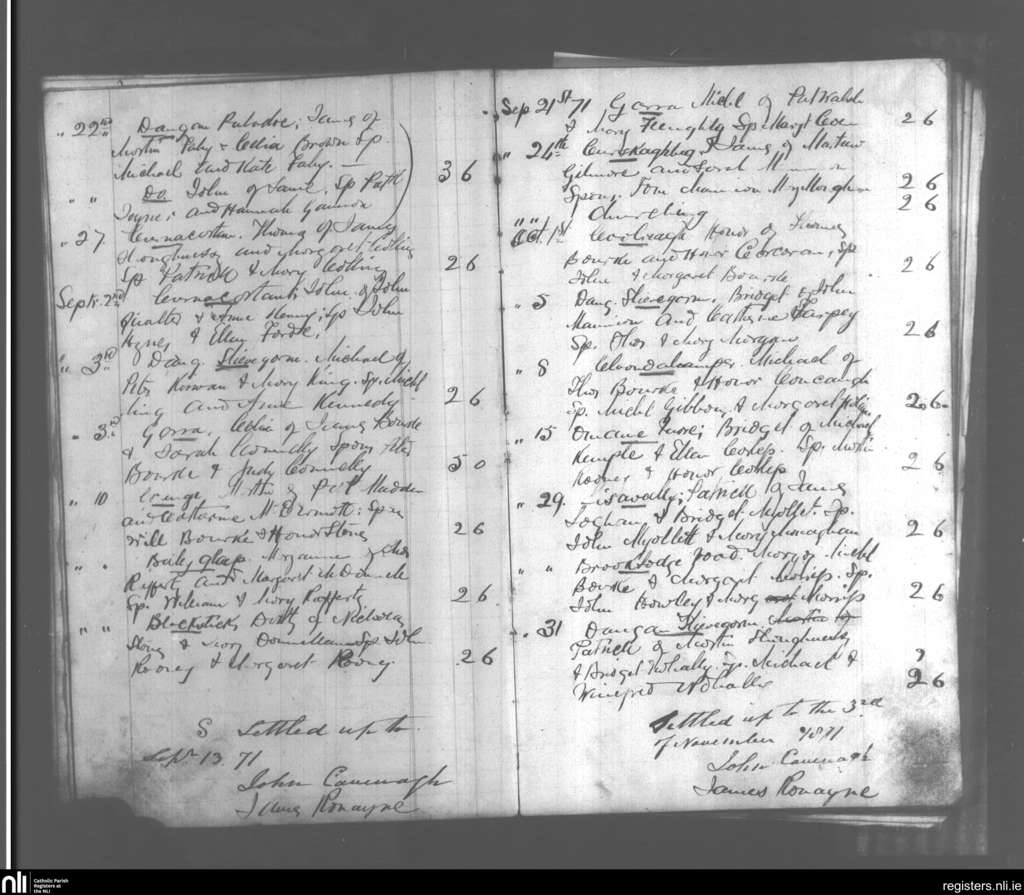 " 22nd Dangan ; James of
Martin Fahy & Celia Brown Sp.
Michael and Kate Fahy. 3 6
" " Do. John of Same, Sp Patt
Joyce; and Hannah Gannon
" 27. Thomas of James
and Margaret Collins
Sp Patrick & Mary Collins 2 6
Septr. 2nd John of John
Qualter & Anne Kenny; Sp John
Hynes & Ellen Forde.
" 3rd Dang. Slievegorm. Michael of
Peter Kirwan & Mary King. Sp. Michl
King and Anne Kennedy 2 6
" 3rd Gorra, Celia of James Bourke
& Sarah Connelly Spons Peter
Bourke & Judy Connelly 5 0
" 10 Martin of Pat Madden
and Catharine McDermott: Spn
Will Bourke & Honor Stones 2 6
" " Baily glap Maryanne of Chas
Rafferty and Margaret McDonnell
Sp. William & Mary Rafferty 2 6
" " Blacksticks of Nicholas
Stones & Mary Donnellan Sp John
Rooney & Margaret Rooney. 2 6
S Settled up to
Sepr 13 71
John Cavenagh
James Ronayne
Sep 21st 71 Gorra Michl of Pat Walsh
& Mary Feeughty Sp Margt Coen 2 6
" 24th James of Matthew
Gilmore and Sarah
Spons, Tom Mannion My Morghan 2 6
" " Churching 2 6
Oct. 1st Honor of Thomas
Bourke and Honor Corcoran; Sp
John & Margaret Bourke 2 6
" 5 Dang. Slievegorm, Bridget of John
Mannion and Catherine Tarpey
Sp. Thos & Mary Morgan 2 6
" 8 Michael of
Thos Bourke & Honor Concannon
Sp. Michl Gibbons & Margaret 2. 6.
" 15 Omaune more; Bridget of Michael
Kemple & Ellen Corless. Sp. Martin
Rooney & Honor Corless 2 6
" 29. Lisavally; Patrick of James
& Bridget Myollet. Sp.
John Myollett & Mary Monaghan 2 6
" " Brooklodge road. Mary of Michl
Bourke & Margaret Morris. Sp.
John Howley & Mary Morris 2 6
" 31 Dangan Slievegorm
Patrick of Martin Shaughnessy
& Bridget Whally. Sp. Michael &
Winifred Whally 2 6
Settled up to the 3rd
of November 1871
John Cavenagh
James Ronayne
nli
Catholic Parish
Registers at
the NLI
registers.nli.ie